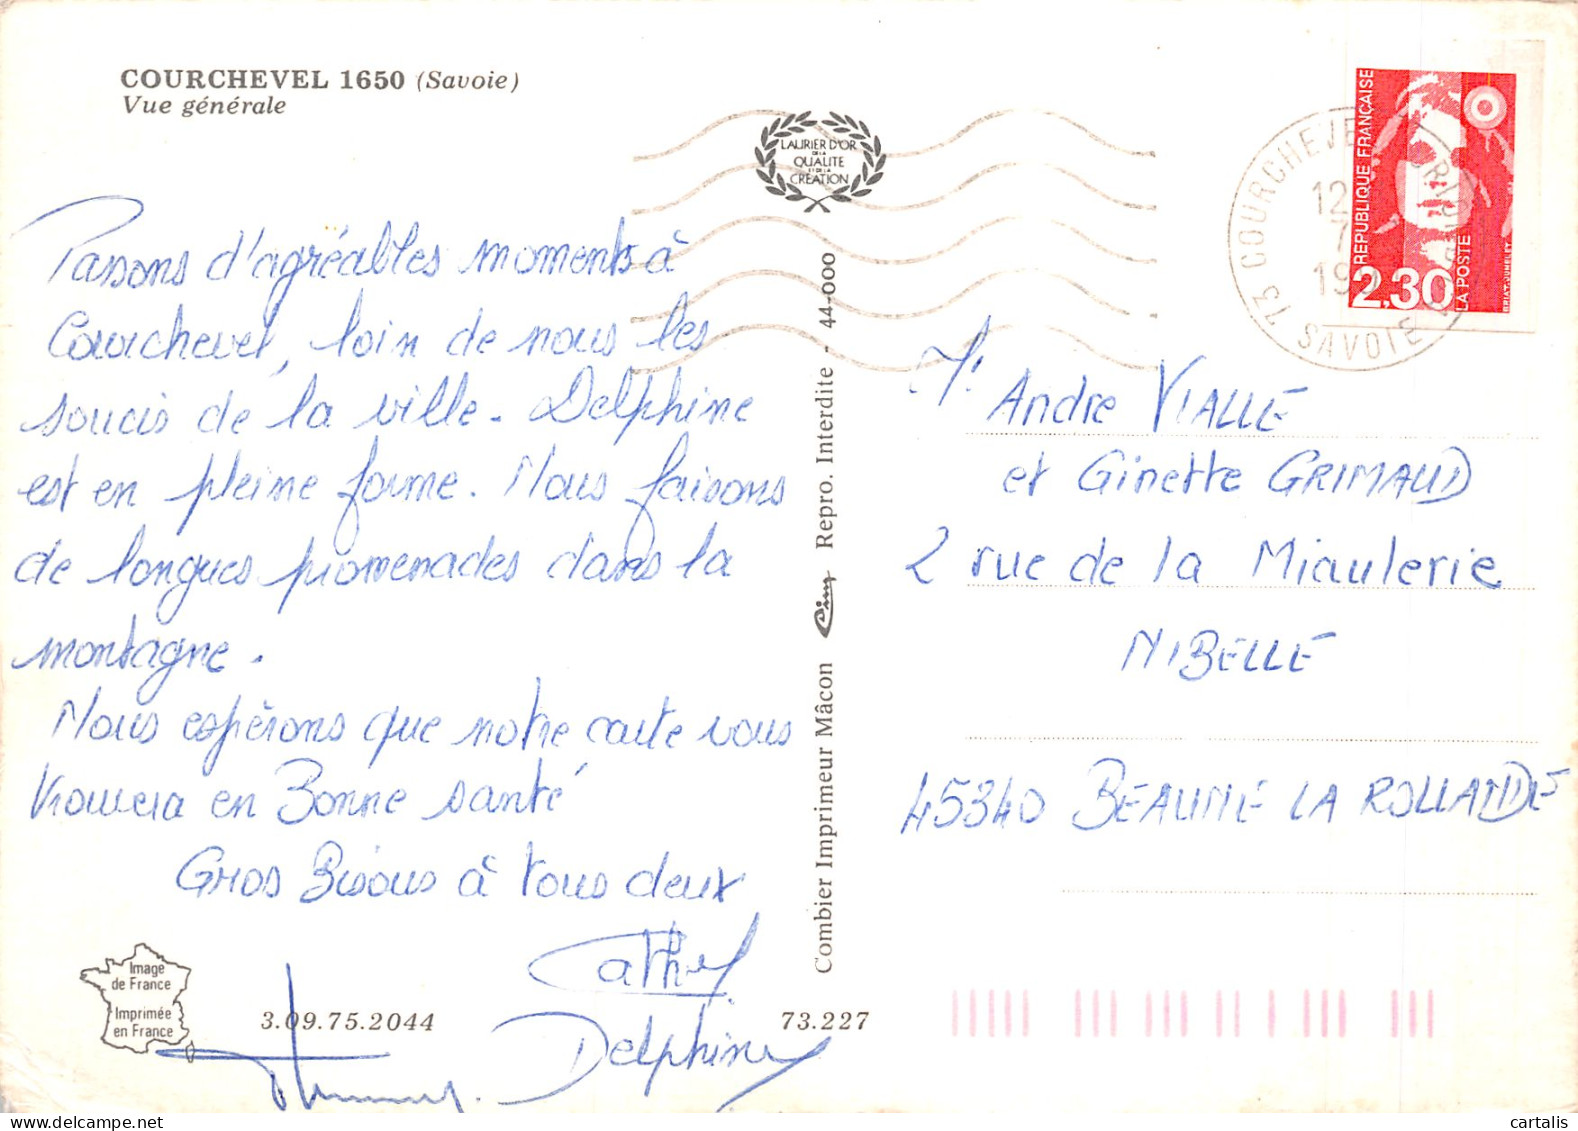 COURCHEVEL 1650 (Savoie)
Vue générale
LAURIER D'OR
DE LA
QUALITE
ET DE LA
CREATION
Passons d'agréables moments à
Courchevel, loin de nous les
soucis de la ville. Delphine
est en pleine forme. Nous faisons
de longues promenades dans la
montagne.
Nous espérons que notre carte vous
trouvera en Bonne santé
Gros Bisous à tous deux
Cathy
Delphine
Image
de France
Imprimée
en France
3.09.75.2044
73.227
Combier Imprimeur Mâcon Cim Repro. Interdite - 44-000
73 COURCHEVEL
12
7
19
SAVOIE
REPUBLIQUE FRANÇAISE
2,30
LA POSTE
André VIALLE
et Ginette GRIMAUD
2 rue de la Miaulerie
NIBELLE
45340 BEAUNE LA ROLLANDE
cartalis